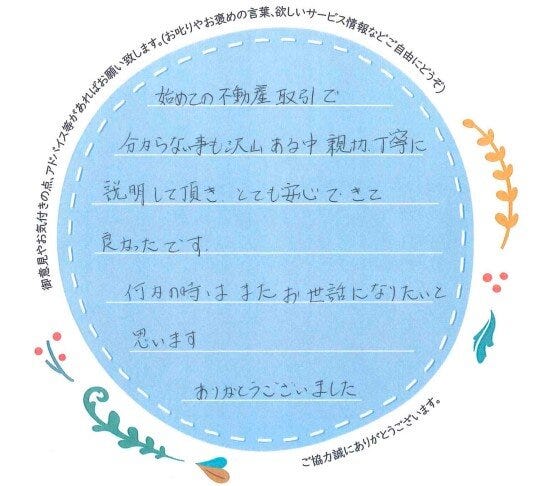 御意見やお気付きの点、アドバイス等があればお願い致します。(お叱りやお褒めの言葉、欲しいサービス情報などご自由にどうぞ)
始めての不動産取引で
分からない事も沢山ある中 親切、丁寧に
説明して頂き とても安心できて
良かったです。
何かの時は またお世話になりたいと
思います
ありがとうございました
ご協力誠にありがとうございます。